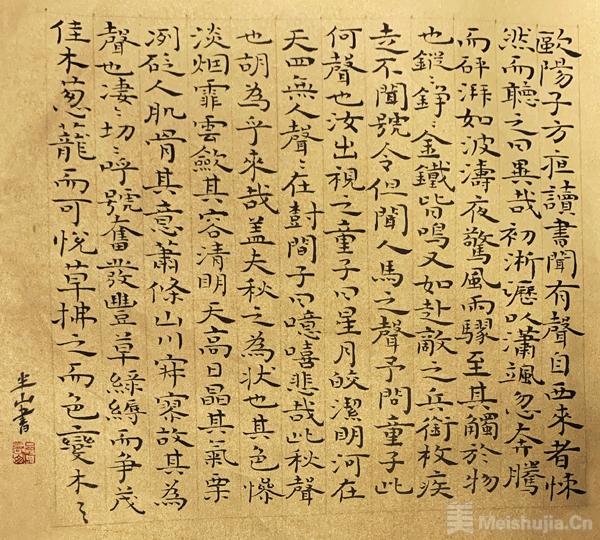 歐陽子方夜讀書聞有聲自西來者悚
然而聽之曰異哉初淅瀝以瀟颯忽奔騰
而砰湃如波濤夜驚風雨驟至其觸於物
也鏦〻錚〻金鐵皆鳴又如赴敵之兵銜枚疾
走不聞號令但聞人馬之聲予問童子此
何聲也汝出視之童子曰星月皎潔明河在
天四無人聲〻在樹間予曰噫嘻悲哉此秋聲
也胡為乎來哉盖夫秋之為狀也其色慘
淡烟霏雲歛其容清明天高日晶其氣栗
冽砭人肌骨其意蕭條山川寂寥故其為
聲也凄〻切〻呼號奮發豐草綠縟而争茂
佳木葱蘢而可悅草拂之而色變木〻
山書
美 Meishujia.Cn